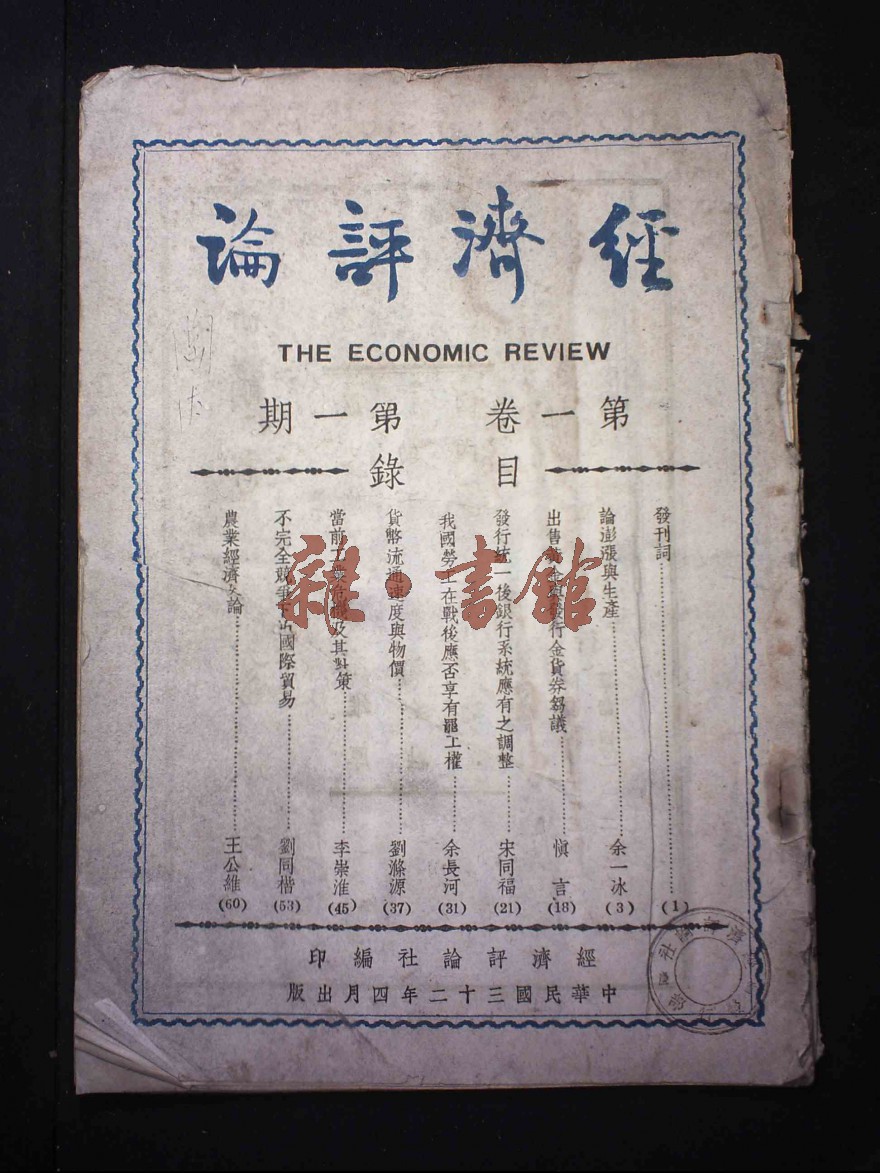 經濟評論
THE ECONOMIC REVIEW
第一卷 第一期
目錄
發刊詞 (1)
論澎漲與生產 余一冰 (3)
出售 行金貨券芻議 慎言 (18)
發行統一後銀行系統應有之調整 宋同福 (21)
我國勞工在戰後應否享有罷工權 余長河 (31)
貨幣流通速度與物價 劉滌源 (37)
當前工業危機及其對策 李崇淮 (45)
不完全競爭下的國際貿易 劉同楷 (53)
農業經濟 論 王公維 (60)
經濟評論社編印
中華民國三十二年四月出版
雜·書館